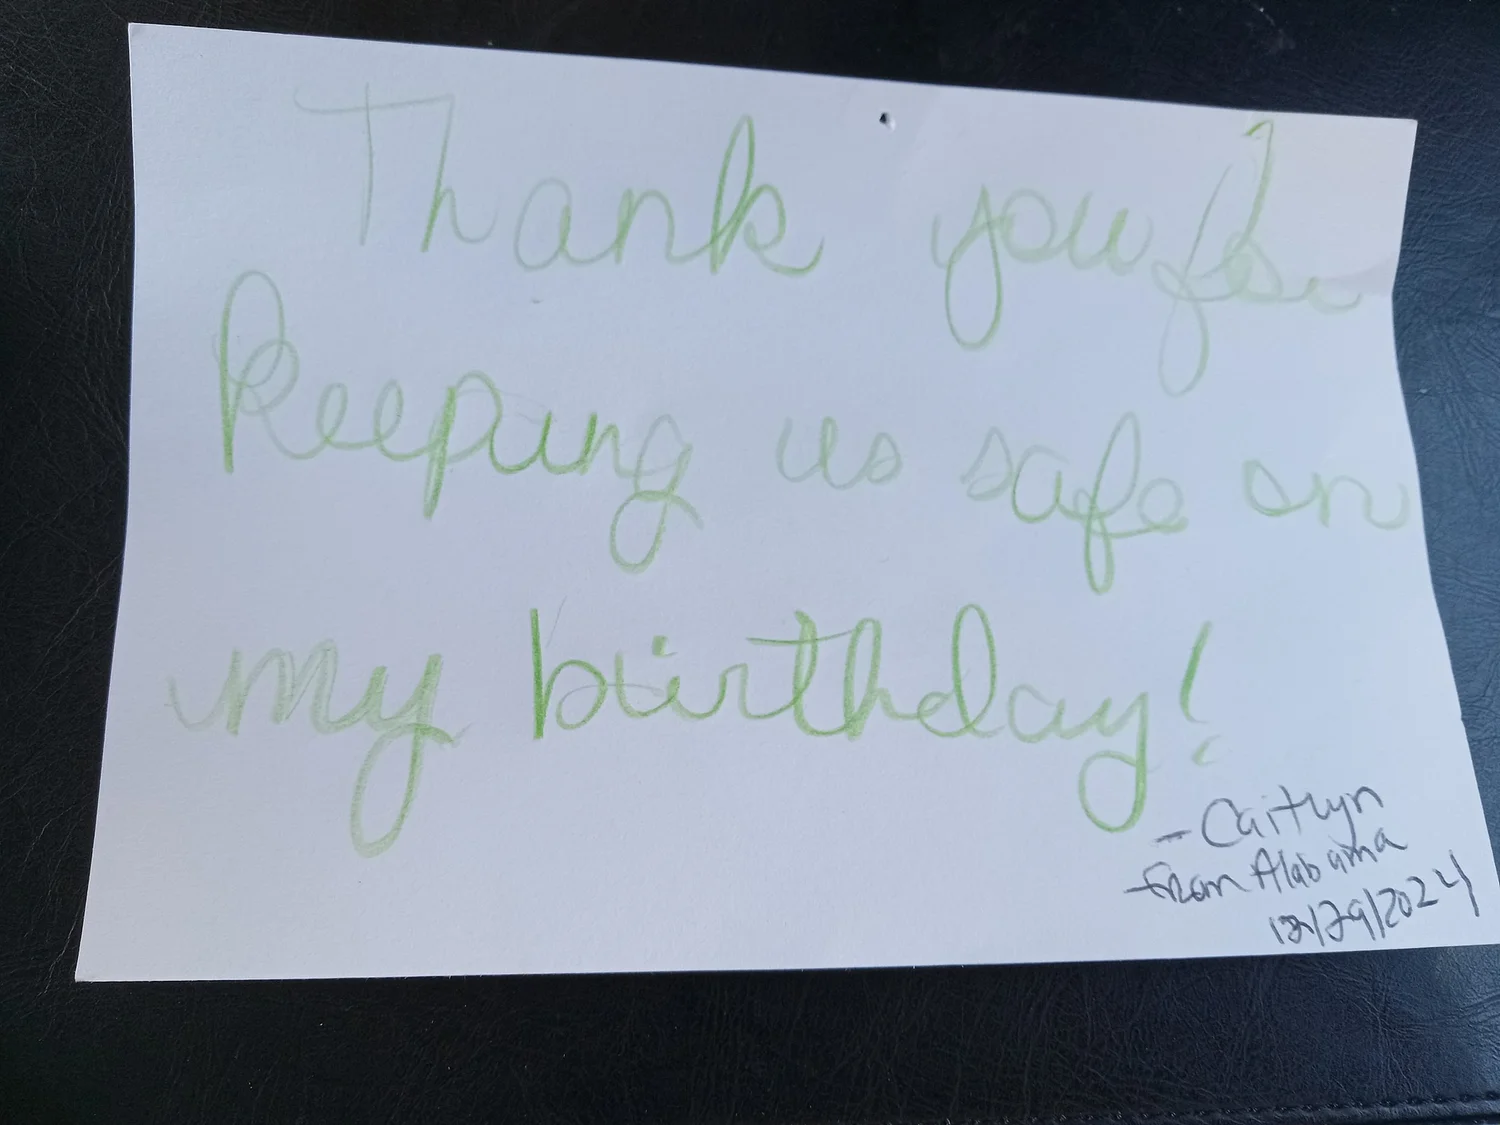 Thank you for
keeping us safe on
my birthday!
- Caitlyn
from Alabama
12/29/2024